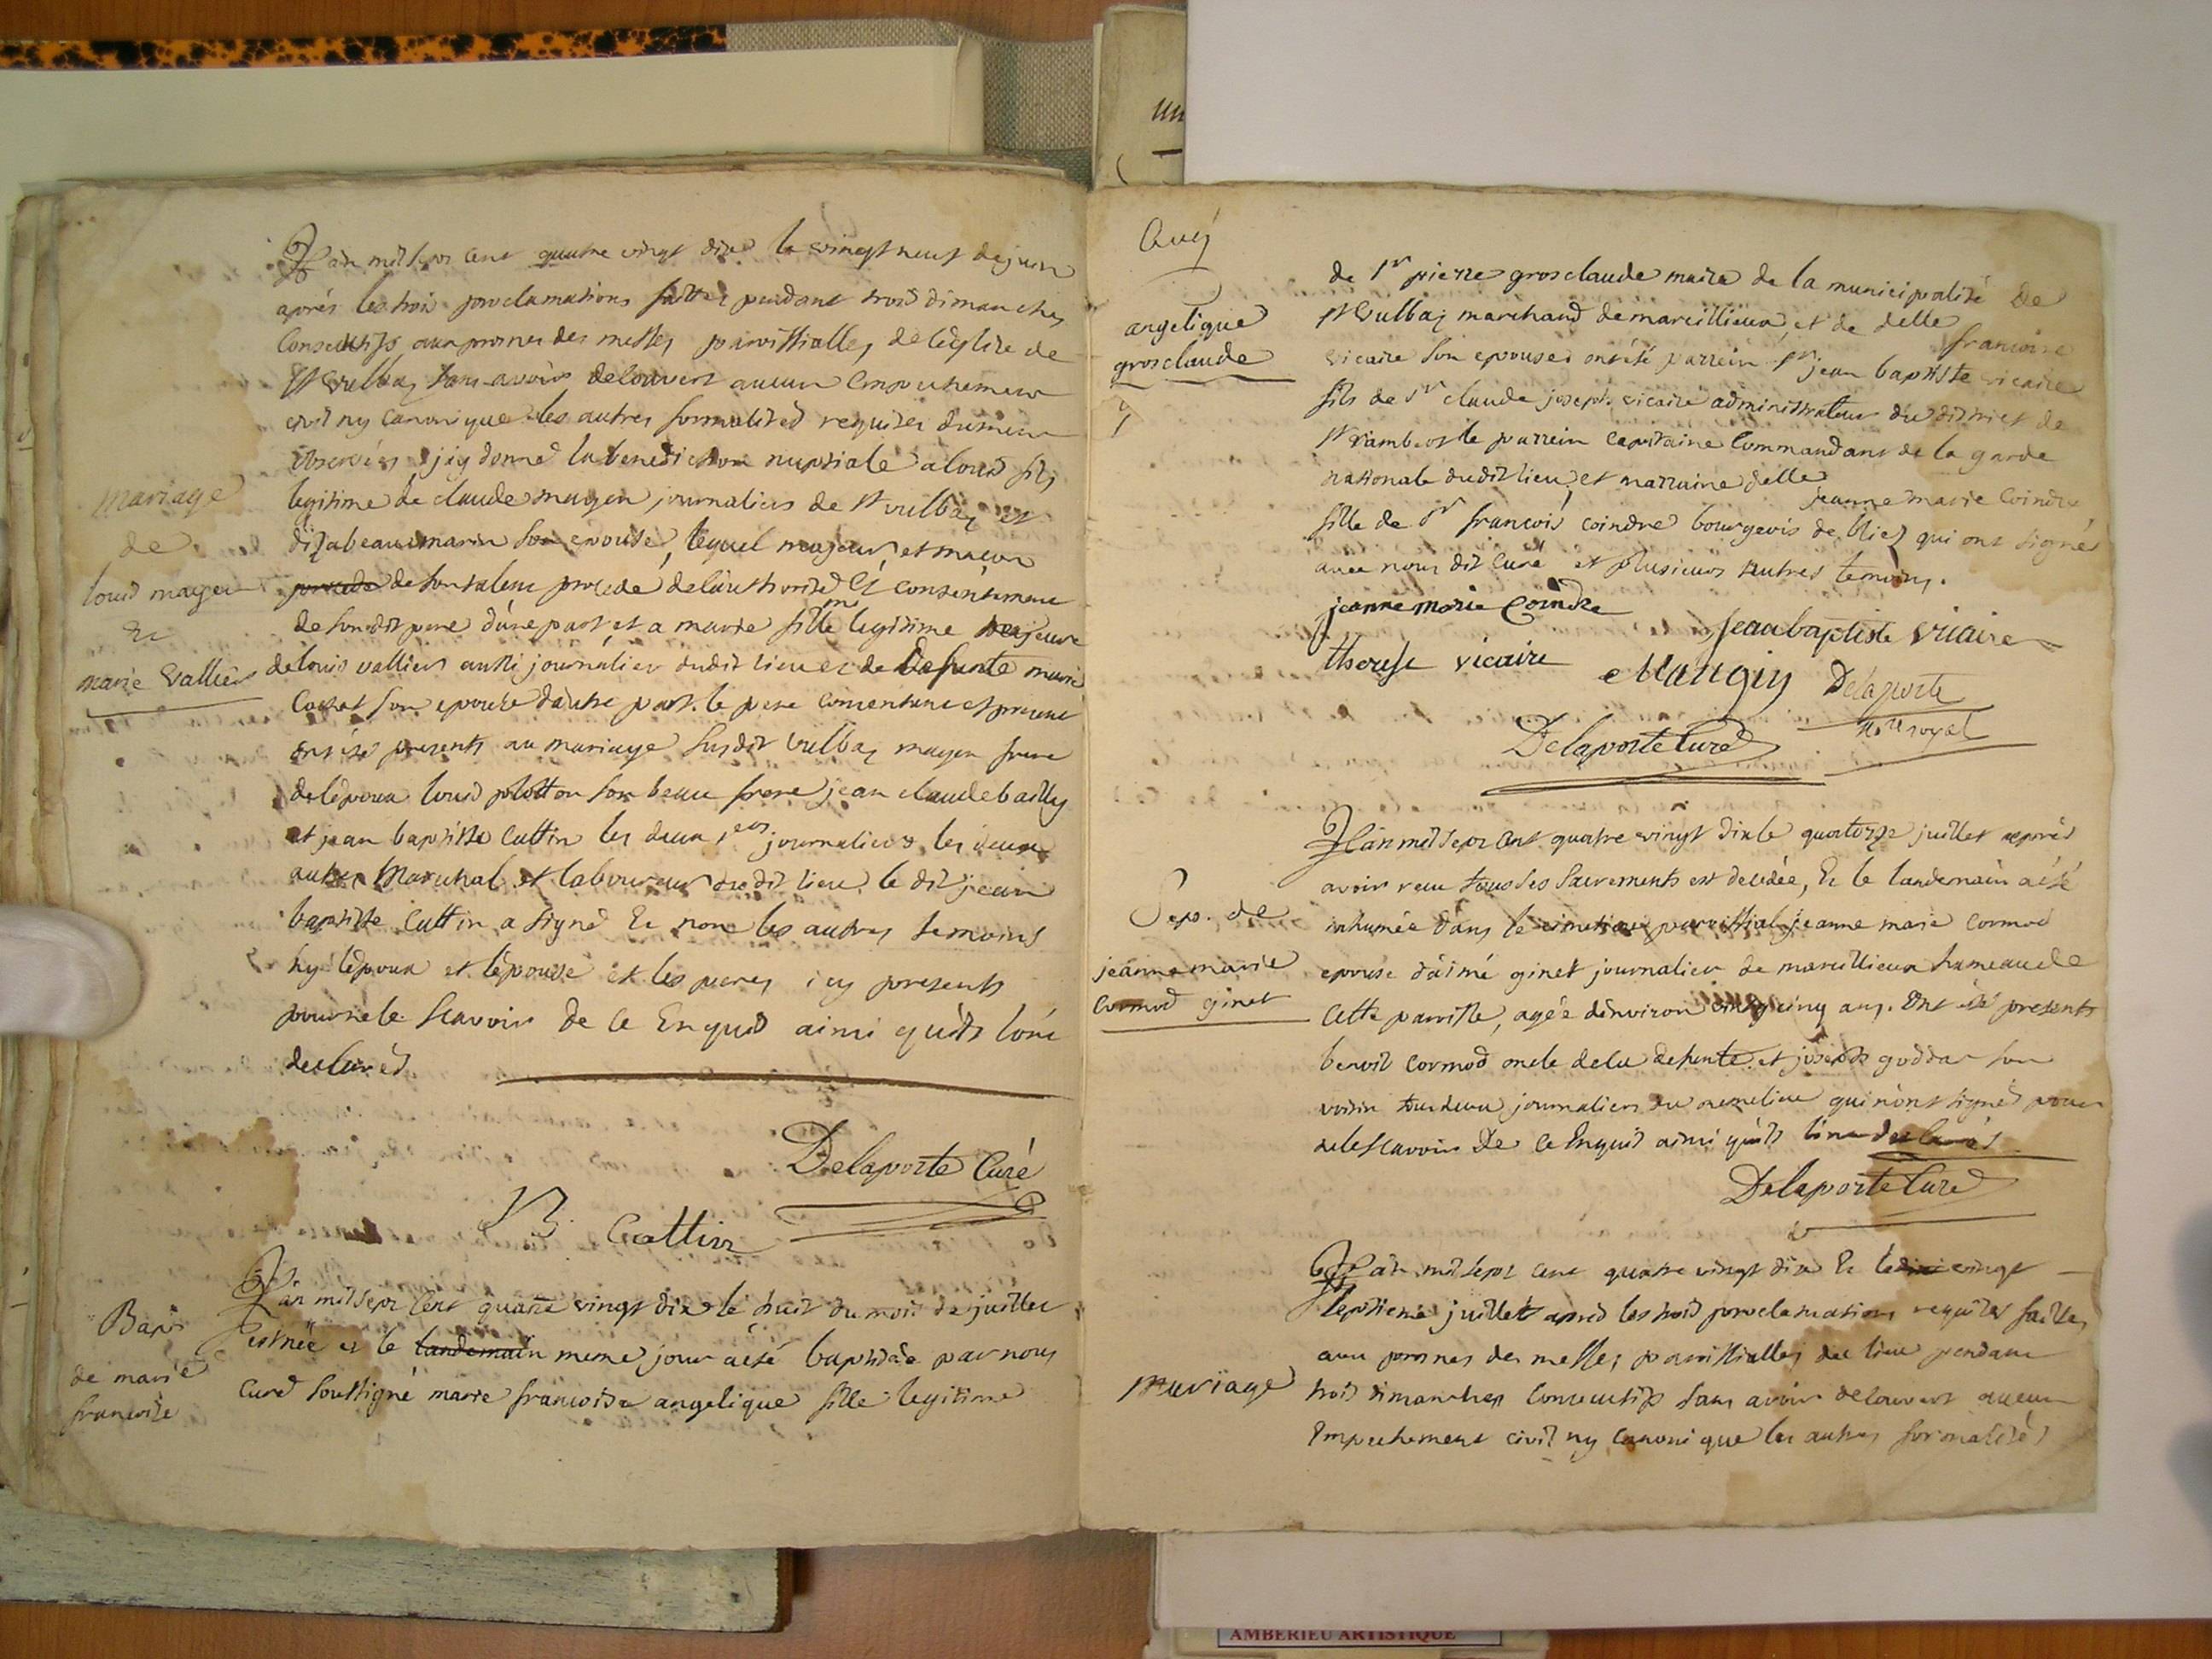 L'an mil sept cent quatre vingt dix le vingt neuf de juin
aprés les trois proclamations faittes pendant trois dimanches
consecutifs aux prones des messes paroissialles de l'eglise de
st vulbaz sans avoir decouvert aucun empechement
civil ny canonique les autres formalités requises dument
observées j'ay donné la benediction nuptiale a louis fils
legitime de claude mayen journaliers de st vulbaz et
d'izabeau marin son epouse, lequel majeur et maçon
procede de son talent procede de l'authorité et consentement
de son dit pere d'une part et a marie fille legitime majeure
de louis valliers aussi journalier dudit lieu et de defunte marie
son epouse d'autre part. le pere consentent et present
ont été presents au mariage susdit vulbaz mayen frere
de l'epoux louis plotton son beau frere jean claude bailly
et jean baptiste cuttin les deux 1ers journaliers les deux
autres marechal et laboureur du dit lieu. le dit jean
baptiste cuttin a signé et non les autres temoins
ny l'epoux et l'epouse et les peres icy presents
pour ne le scavoir de ce enquis ainsi qu'ils l'ont
declarés
Mariage
de
louis mayen
et
marie valliers
Delaporte Curé
B Cattin
L'an mil sept cent quatre vingt dix le huit du mois de juillet
est née et le landemain meme jour a été baptisée par nous
curé soussigné marie francoise angelique fille legitime
Bap.
de marie
francoise
angelique
grosclaude
de sr pierre grosclaude maire de la municipalité de
st vulbaz marchand de marcillieux et de delle francoise
vicaire son epouse ont été parrein sr jean baptiste vicaire
fils de sr claude joseph vicaire administrateur du district de
st rambert le parrein capitaine commandant de la garde
nationale dudit lieu, et marraine delle jeanne marie coindre
fille de sr francois coindre bourgeois de blies qui ont signés
avec nous dit curé et plusieurs autres temoins.
jeanne marie Coindre
jean baptiste vicaire
therese vicaire
Mangin
Delaporte
nre royal
Delaporte Curé
L'an mil sept cent quatre vingt dix le quatorze juillet aprés
avoir recu tous ses sacrements est decedée, et le landemain a été
inhumée dans le cimetiere paroissial jeanne marie cormod
epouse d'aimé ginet journalier de marcillieux hameau de
cette paroisse, agée d'environ vingt cinq ans. ont été presents
benoit cormod oncle de la defunte et joseph goddar son
voisin tous deux journaliers du meme lieu qui n'ont signés pour
ne le scavoir de ce enquis ainsi qu'ils l'ont declarés
Sep. de
jeanne marie
cormod ginet
Delaporte Curé
L'an mil sept cent quatre vingt dix et le vingt
septieme juillet aprés les trois proclamations requises faittes
aux prones des messes paroissialles du lieu pendant
trois dimanches consecutifs sans avoir decouvert aucun
empechement civil ny canonique les autres formalités
Mariage
AMBERIEU ARTISTIQUE